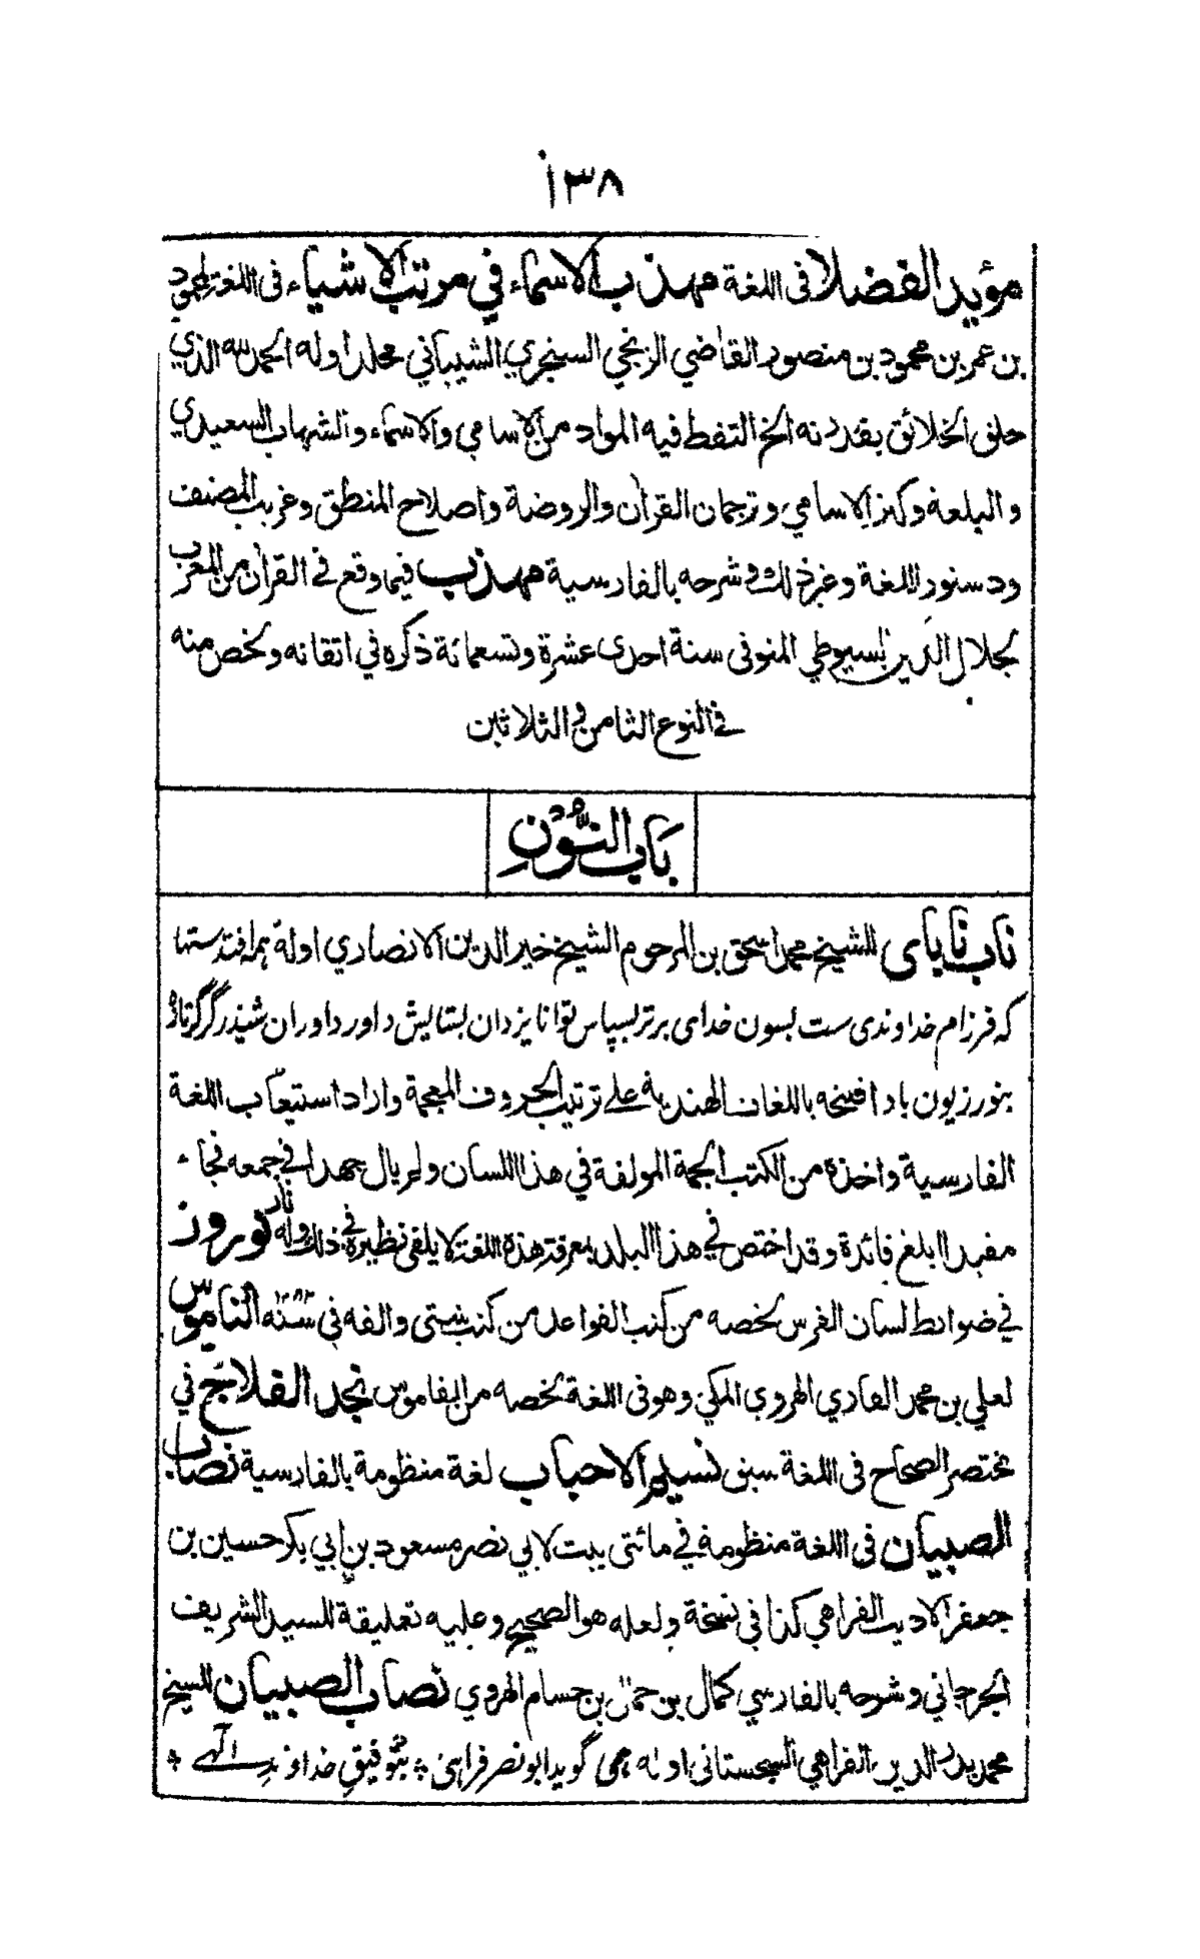 ١٣٨
مؤيد الفضلا في اللغة مهذب الاسماء في مرتب الاشياء في اللغة لمحمود
بن عمر بن محمود بن منصور القاضي الزنجي السنجري الشيباني مجلد اوله الحمد لله الذي
خلق الخلائق بقدرته الخ التقط فيه المواد من الاسامي والاسماء والشهاب السعيدي
والبلغة وكنز الاسامي وترجمان القرآن والروضة واصلاح المنطق وغريب المصنف
ودستور اللغة وغير ذلك وشرحه بالفارسية مهذب فيما وقع في القرآن من المعرب
لجلال الدين السيوطي المتوفى سنة احدى عشرة وتسعمائة ذكره في اتقانه ولخص منه
في النوع الثامن والثلاثين
باب النون
ناب نايای للشيخ محمد اسحق بن المرحوم الشيخ خير الدين الانصاري اوله
كه فرزام خداوندی ست بسون خدای برتر بسپاس توانا یزدان بستایش داور داوران
باد باللغات الهندية على ترتيب الحروف المعجمة واراد استيعاب اللغة
الفارسية واخذه من الكتب الجمة المولفة في هذا اللسان ولم يال جهدا في جمعه فجاء
مفيدا ابلغ فائدة وقد اختص في هذا البلد بمعرفة هذه اللغة لا يلقى نظيره في ذلك وله نوروز
في ضوابط لسان الفرس لخصه من كتب القواعد من كتب شتى والفه في سنة ١٢٨٣ الناموس
لعلي بن محمد القاري الهروي المكي وهو في اللغة لخصه من القاموس نجد الفلاح في
مختصر الصحاح في اللغة سبق نسيم الاحباب لغة منظومة بالفارسية نصاب
الصبيان في اللغة منظومة في مائتى بيت لابي نصر مسعود بن ابي بكر حسين بن
جعفر الاديب الفراهي كذا في نسخة ولعله هو الصحيح وعليه تعليقة للسيد الشريف
الجرجاني وشرحه بالفارسي كمال بن جمال بن حسام الهروي نصاب الصبيان للشيخ
محمد بدر الدين الفراهي السجستانی اوله همی گوید ابو نصر فراهی * بتوفیق خداوند الهی *